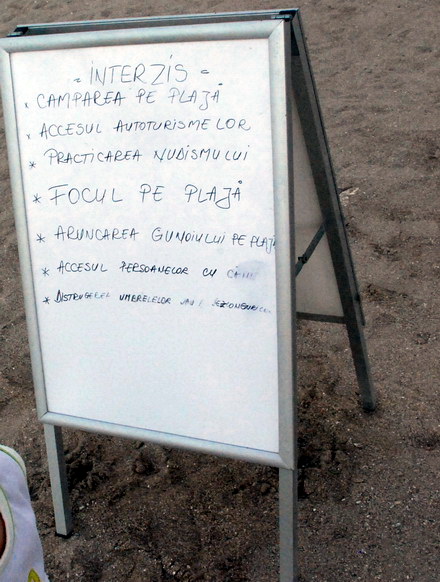 - INTERZIS -
* CAMPAREA PE PLAJĂ
* ACCESUL AUTOTURISMELOR
* PRACTICAREA NUDISMULUI
* FOCUL PE PLAJĂ
* ARUNCAREA GUNOIULUI PE PLAJĂ
* ACCESUL PERSOANELOR CU
* DISTRUGEREA UMBRELELOR SAU